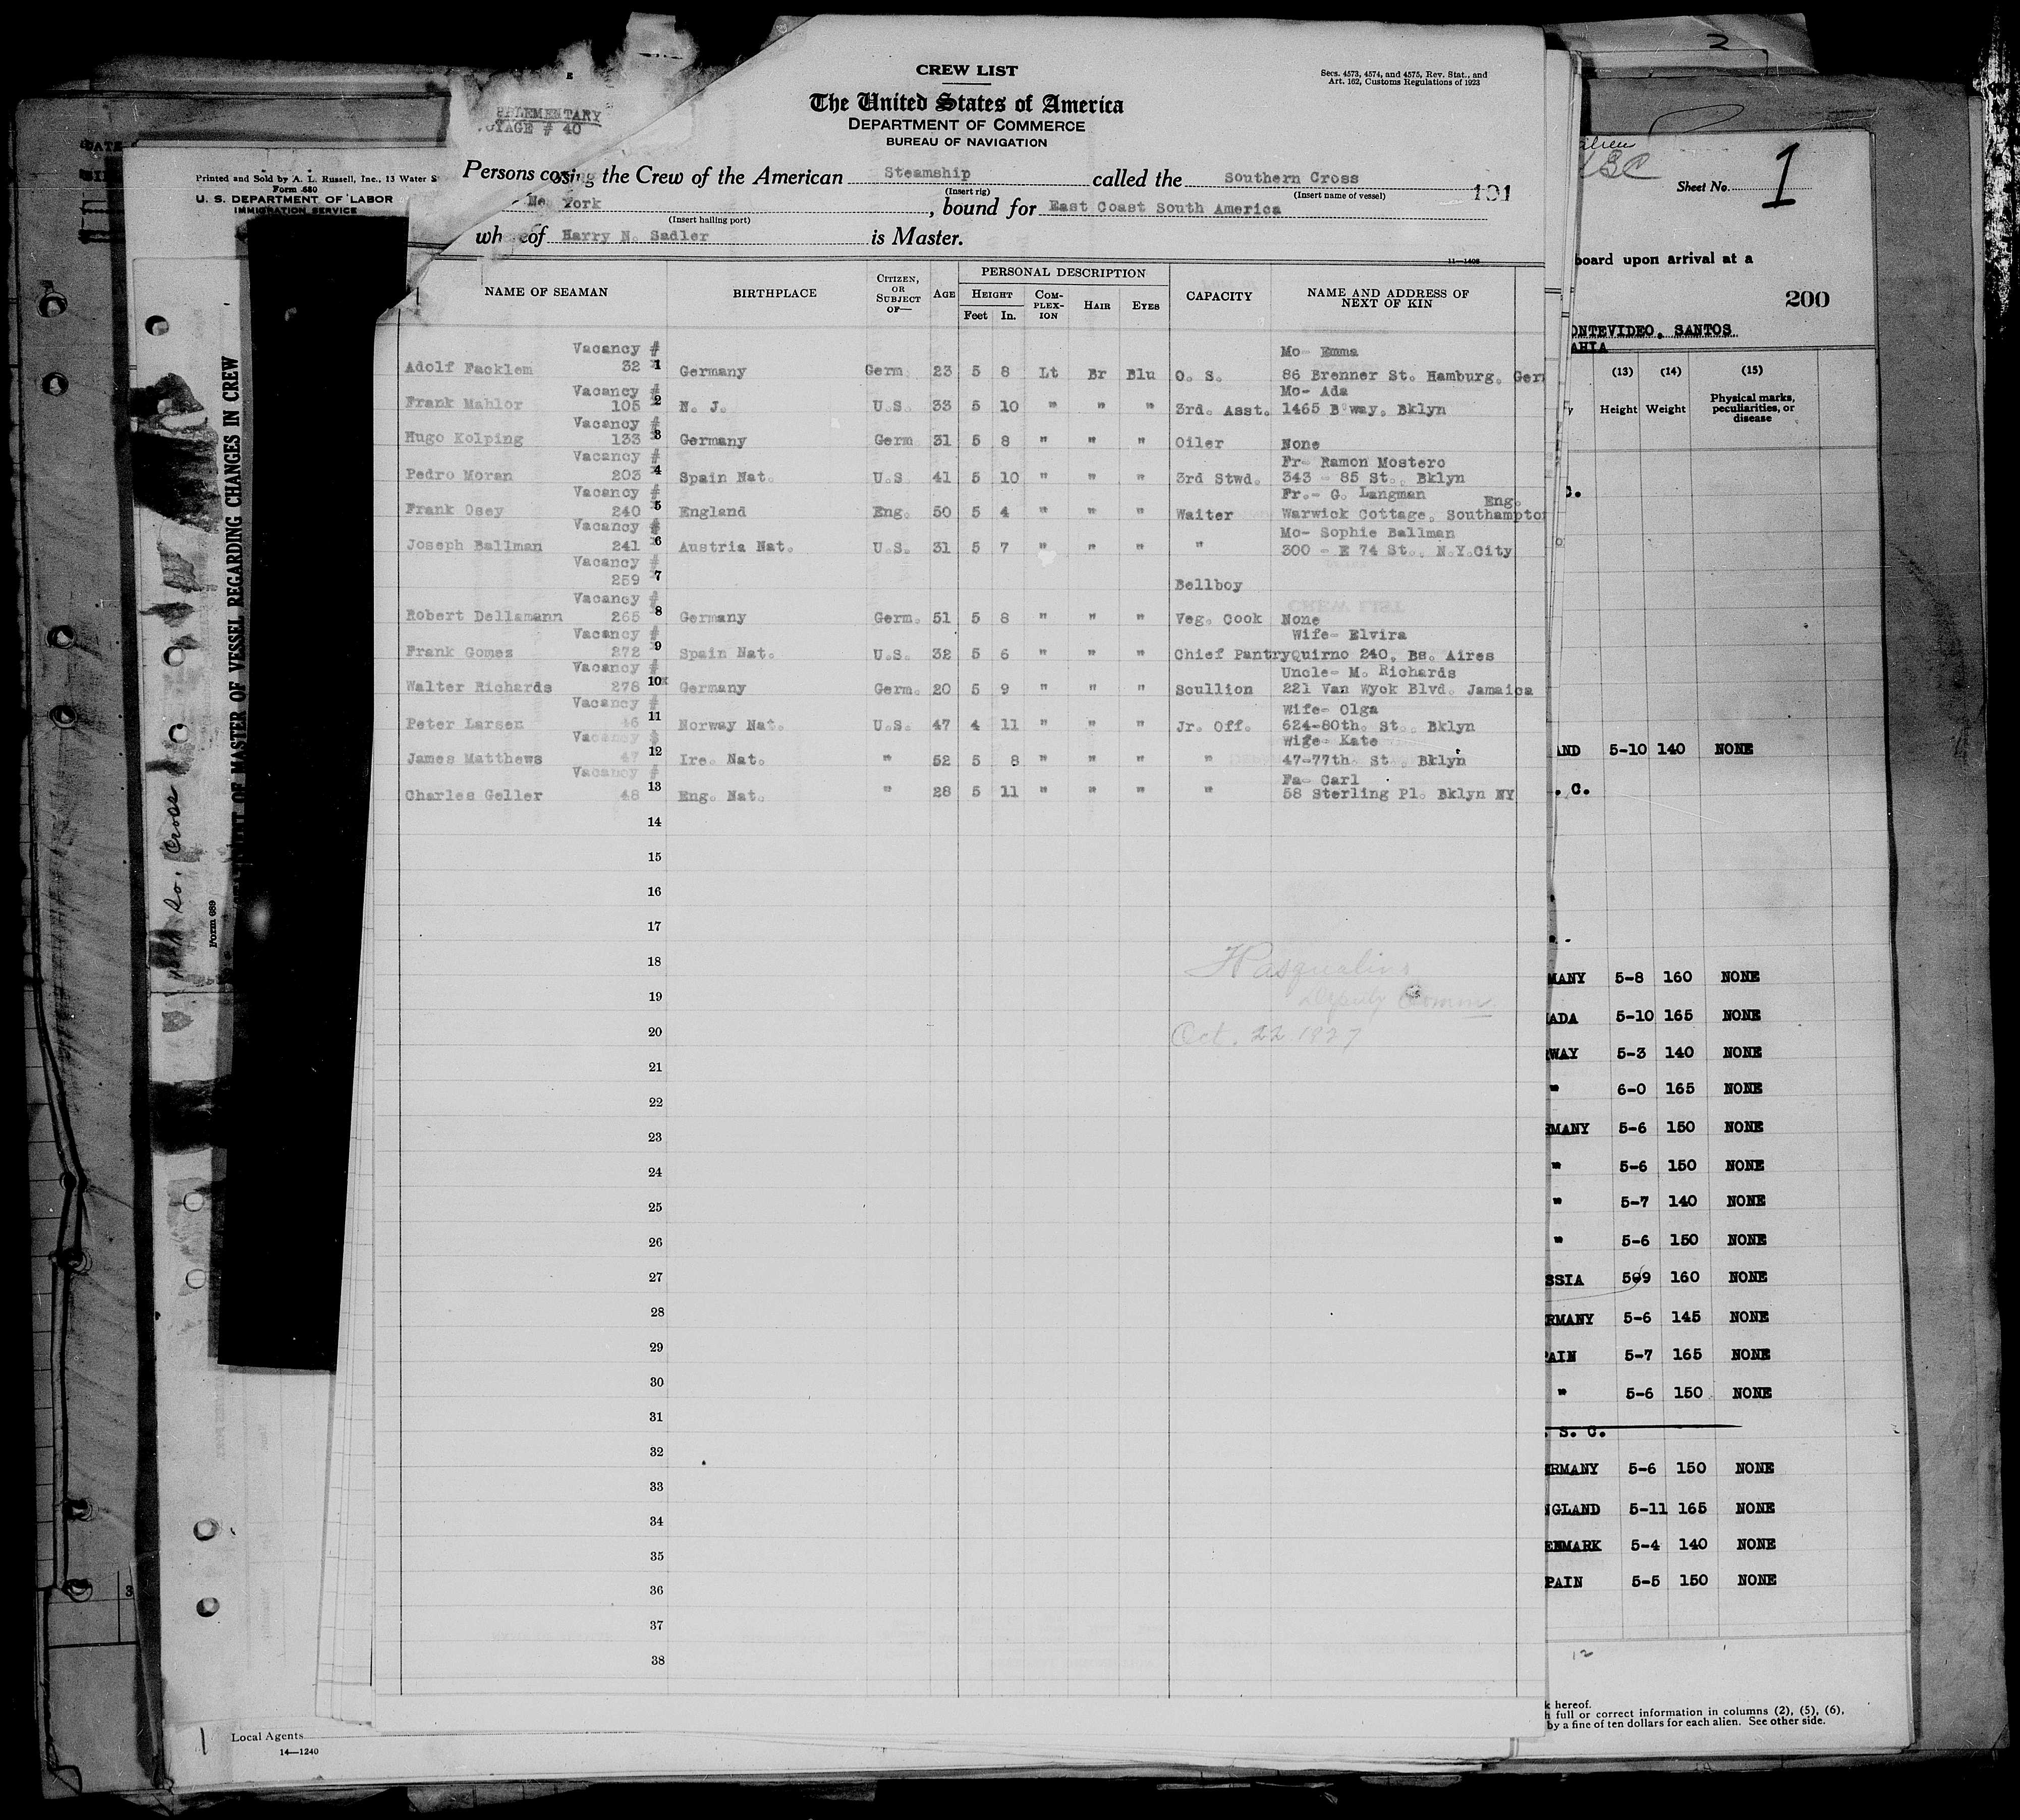 CREW LIST
Secs. 4573, 4574, and 4575, Rev. Stat., and
Art. 162, Customs Regulations of 1923
The United States of America
DEPARTMENT OF COMMERCE
BUREAU OF NAVIGATION
PPLEMENTARY
OYAGE # 40
Persons co sing the Crew of the American Steamship called the Southern Cross
(Insert rig) (Insert name of vessel) 191
Ne York, bound for East Coast South America
(Insert hailing port)
wh eof Harry N. Sadler is Master.
11—1408
NAME OF SEAMAN BIRTHPLACE CITIZEN, OR SUBJECT OF— AGE PERSONAL DESCRIPTION CAPACITY NAME AND ADDRESS OF NEXT OF KIN
HEIGHT COM-PLEX-ION HAIR EYES
Feet In.
Vacancy # Mo- Emma
Adolf Facklem 32 1 Germany Germ 23 5 8 Lt Br Blu O. S. 86 Brenner St. Hamburg. Ger
Vacancy # Mo- Ada
Frank Mahlor 105 2 N. J. U.S. 33 5 10 " " " 3rd. Asst. 1465 B'way. Bklyn
Vacancy #
Hugo Kolping 133 3 Germany Germ 31 5 8 " " " Oiler None
Vacancy # Fr- Ramon Mostero
Pedro Moran 203 4 Spain Nat. U.S 41 5 10 " " " 3rd Stwd. 343 - 85 St.. Bklyn
Vacancy # Fr.- G. Langman Eng.
Frank Osey 240 5 England Eng. 50 5 4 " " " Waiter Warwick Cottage. Southampton
Vacancy # Mo- Sophie Ballman
Joseph Ballman 241 6 Austria Nat. U.S. 31 5 7 " " " " 300 - E 74 St.. N.Y.City
Vacancy #
259 7 Bellboy
Vacancy #
Robert Dellamann 265 8 Germany Germ. 51 5 8 " " " Veg. Cook None
Vacancy # Wife- Elvira
Frank Gomez 272 9 Spain Nat. U.S. 32 5 6 " " " Chief Pantry Quirno 240, Bs. Aires
Vacancy # Uncle- M. Richards
Walter Richards 278 10 Germany Germ. 20 5 9 " " " Scullion 221 Van Wyck Blvd. Jamaica
Vacancy # Wife- Olga
Peter Larsen 46 11 Norway Nat. U.S. 47 4 11 " " " Jr. Off. 624-80th. St.. Bklyn
Vacancy $ Wige- Kate
James Matthews 47 12 Ire. Nat. " 52 5 8 " " " " 47-77th. St . Bklyn
Vacancy # Fa- Carl
Charles Geller 48 13 Eng. Nat. " 28 5 11 " " " " 58 Sterling Pl. Bklyn NY
14
15
16
17
18
19
Deputy Comm
20
Oct. 22 1927
21
22
23
24
25
26
27
28
29
30
31
32
33
34
35
36
37
38
Printed and Sold by A. L. Russell, Inc., 13 Water S
Form 680
U. S. DEPARTMENT OF LABOR
IMMIGRATION SERVICE
OF MASTER OF VESSEL REGARDING CHANGES IN CREW
Form 689
So. Cross
1
Local Agents
14—1240
3
2
Sheet No. 1
board upon arrival at a
200
ONTEVIDEO, SANTOS
AHIA
(13) (14) (15)
Height Weight Physical marks, peculiarities, or disease
C.
AND 5-10 140 NONE
. C.
MANY 5-8 160 NONE
ADA 5-10 165 NONE
WAY 5-3 140 NONE
" 6-0 165 NONE
RMANY 5-6 150 NONE
" 5-6 150 NONE
" 5-7 140 NONE
" 5-6 150 NONE
SSIA 509 160 NONE
ERMANY 5-6 145 NONE
PAIN 5-7 165 NONE
" 5-6 150 NONE
. S. C.
ERMANY 5-6 150 NONE
NGLAND 5-11 165 NONE
ENMARK 5-4 140 NONE
PAIN 5-5 150 NONE
12
k hereof.
h full or correct information in columns (2), (5), (6),
by a fine of ten dollars for each alien. See other side.